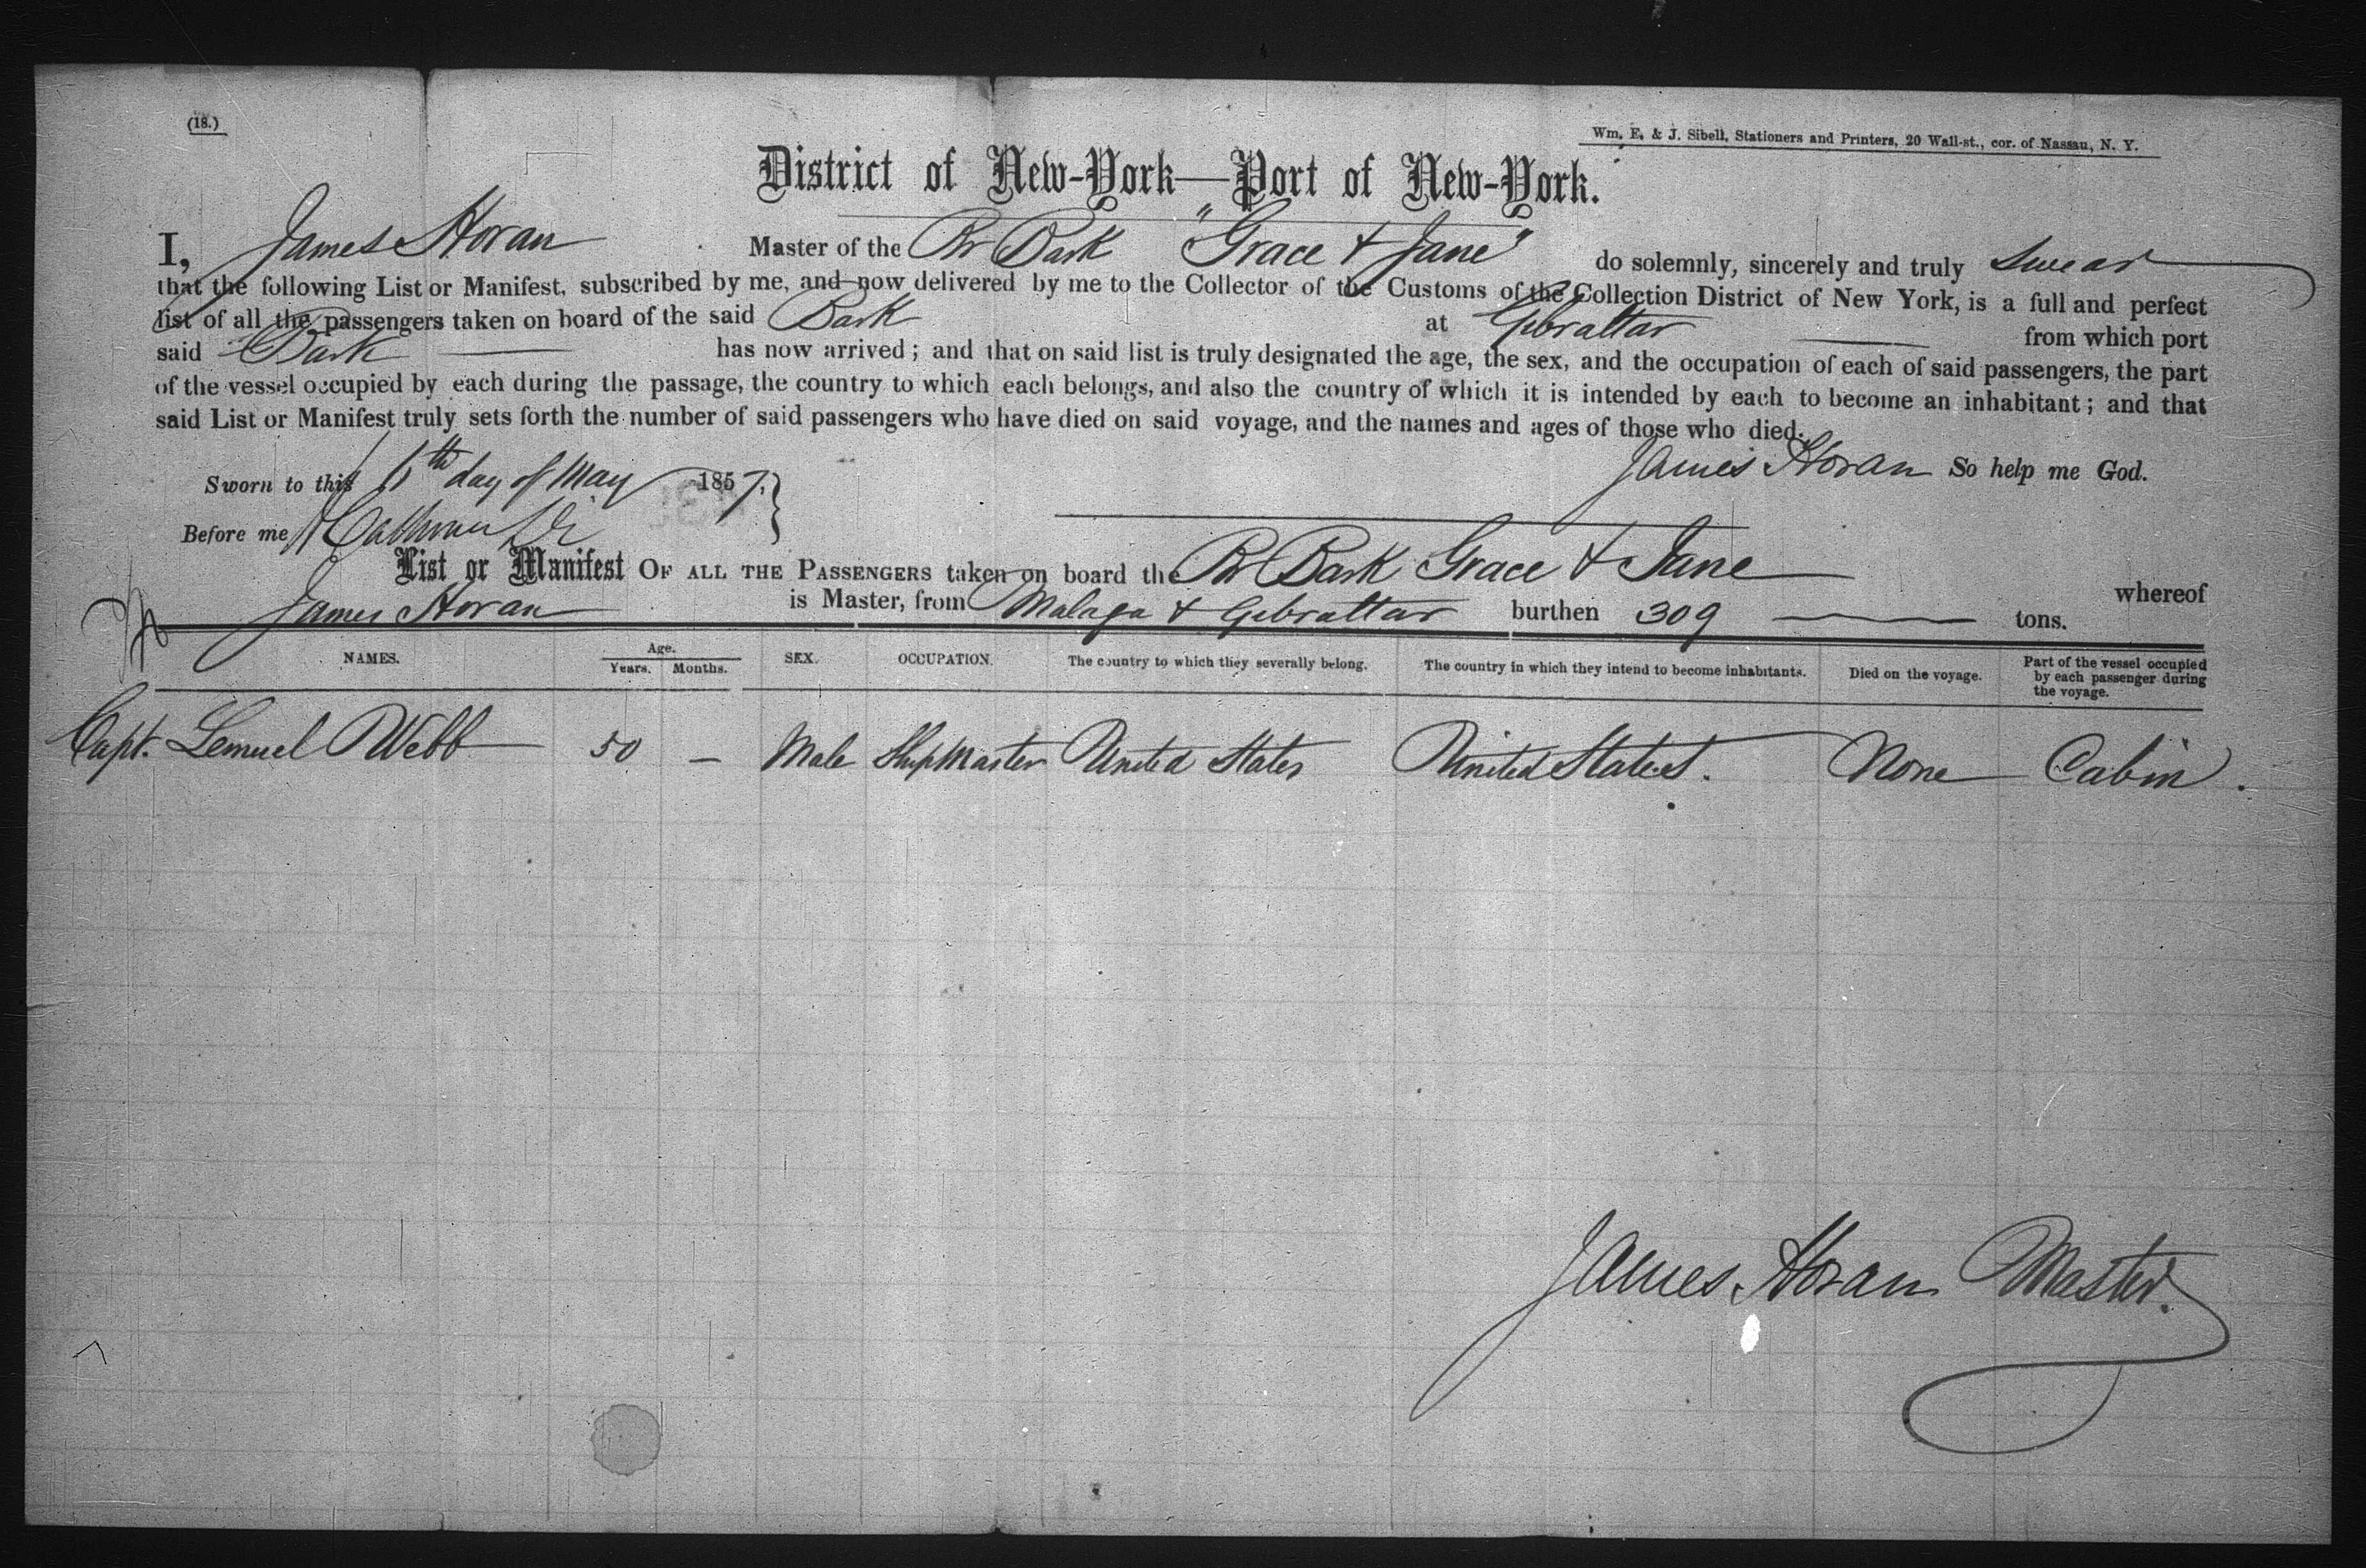 (18.)
Wm. E. & J. Sibell, Stationers and Printers, 20 Wall-st., cor. of Nassau, N. Y.
District of New-York—Port of New-York.
I, James Horan Master of the Br Bark "Grace & Jane" do solemnly, sincerely and truly swear
that the following List or Manifest, subscribed by me, and now delivered by me to the Collector of the Customs of the Collection District of New York, is a full and perfect
list of all the passengers taken on board of the said Bark at Gibraltar from which port
said Bark has now arrived; and that on said list is truly designated the age, the sex, and the occupation of each of said passengers, the part
of the vessel occupied by each during the passage, the country to which each belongs, and also the country of which it is intended by each to become an inhabitant; and that
said List or Manifest truly sets forth the number of said passengers who have died on said voyage, and the names and ages of those who died.
James Horan So help me God.
Sworn to this th day of May 1857,
Before me
List or Manifest OF ALL THE PASSENGERS taken on board the Br Bark Grace & Jane whereof
James Horan is Master, from Malaga & Gibraltar burthen 309 tons.
NAMES. Age. Years. Months. SEX. OCCUPATION. The country to which they severally belong. The country in which they intend to become inhabitants. Died on the voyage. Part of the vessel occupied by each passenger during the voyage.
Capt. Lemuel Webb 50 — Male ShipMaster United States United States. None Cabin.
James Horan Master.